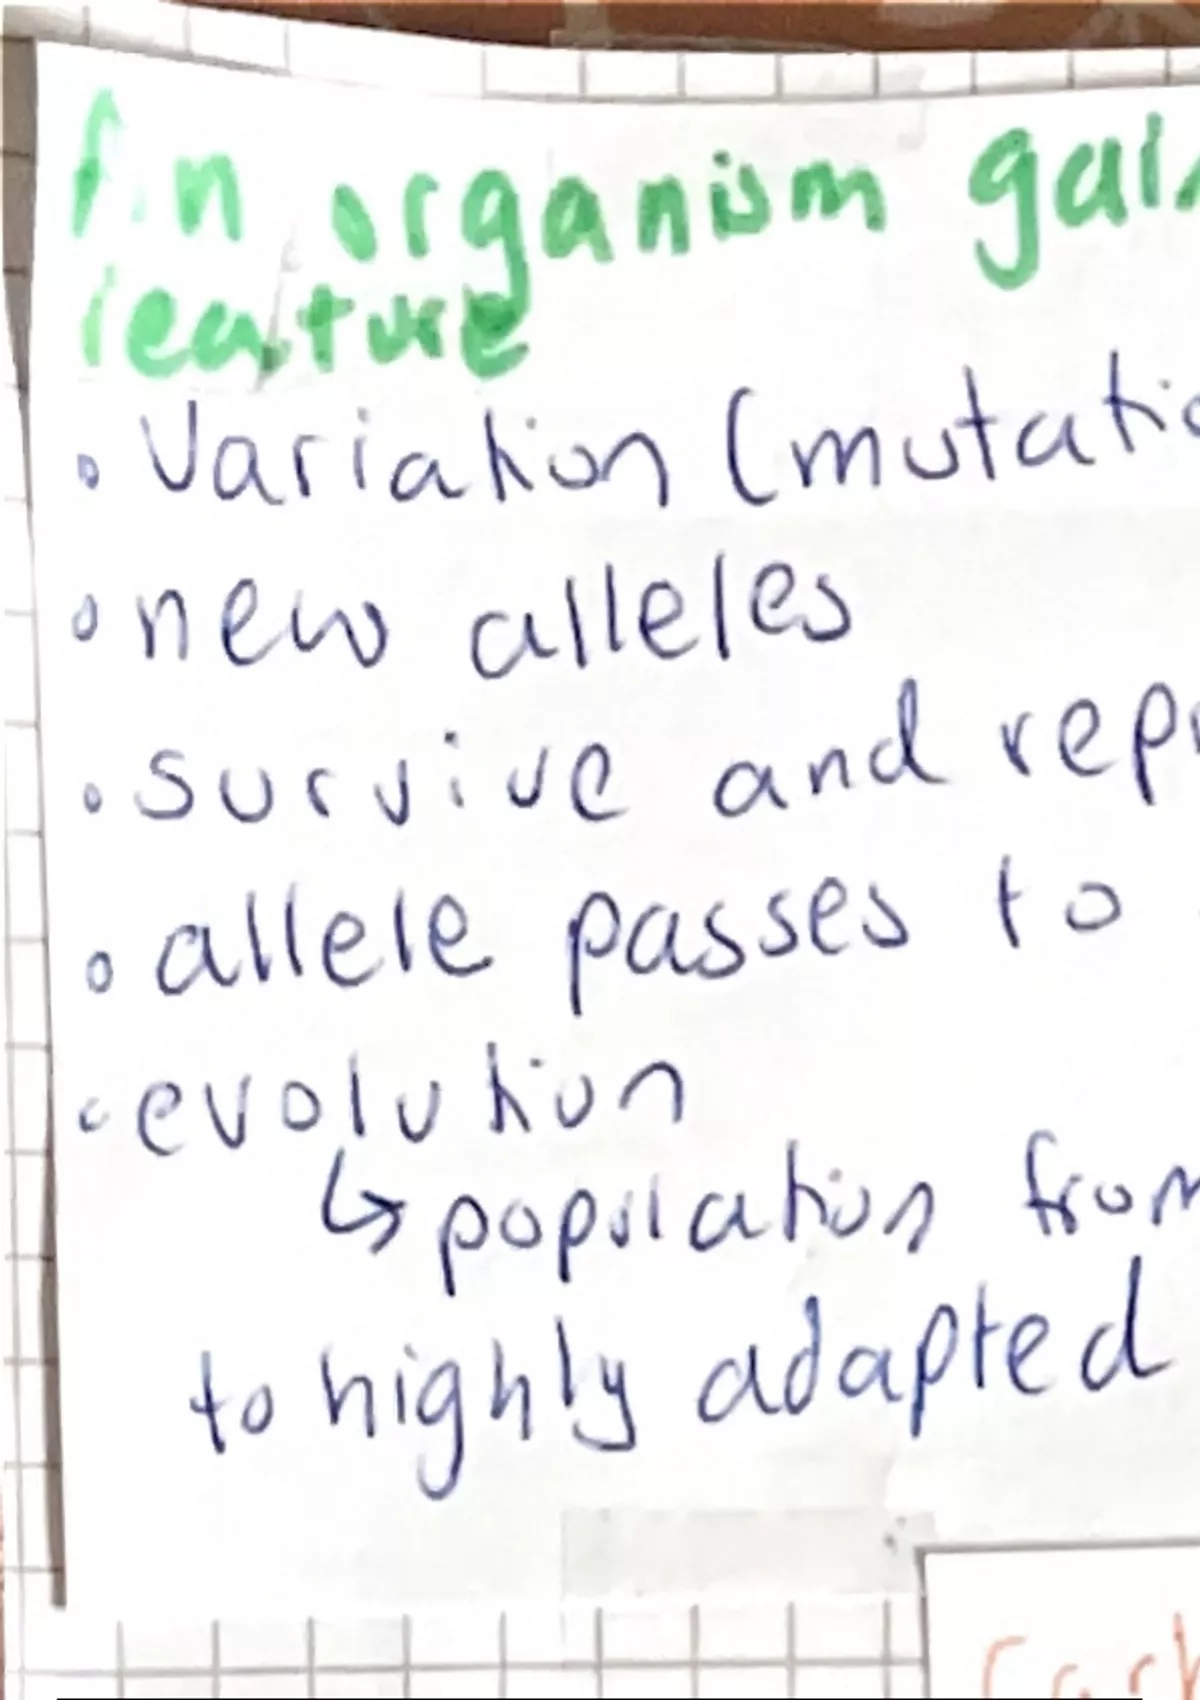 An organism gai
feature
• Variation (mutatio
• new alleles
• survive and repr
• allele passes to
• evolution
↳ population from
to highly adapted